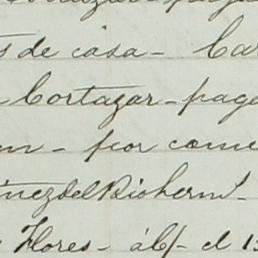 de casa - Car
Cortazar - pag
n - por come
inez del Rio herm.
Flores - á lf - el 15